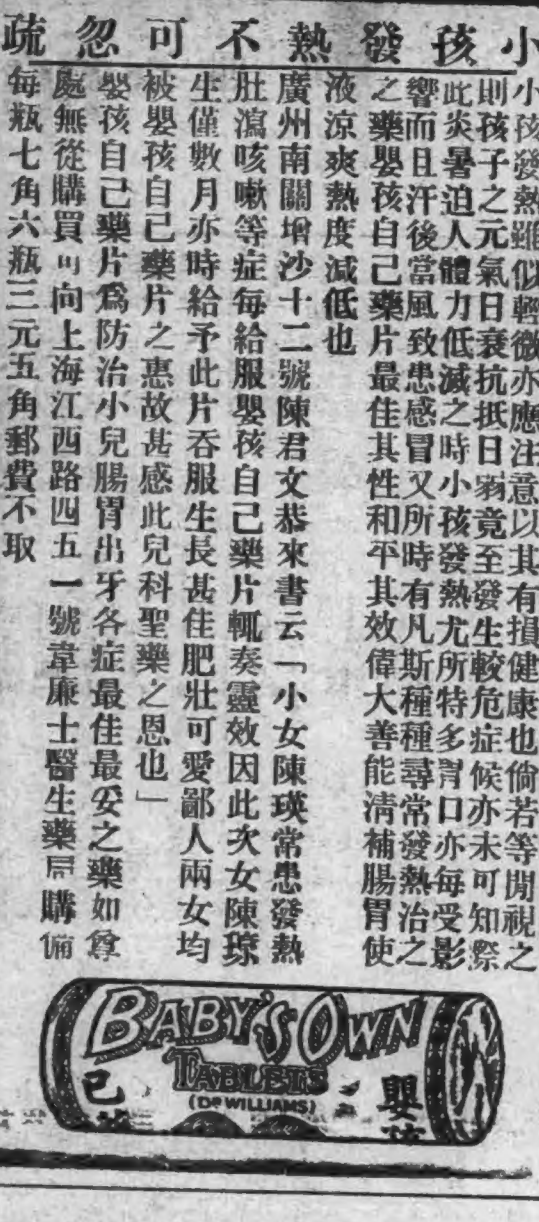 小孩發熱不可忽疏
小孩發熱雖似輕微亦應注意以其有損健康也倘若等閒視之
則孩子之元氣日衰抗抵日弱竟至發生較危症候亦未可知際
此炎暑迫人體力低減之時小孩發熱尤所特多胃口亦每受影
響而且汗後當風致患感冒又所時有凡斯種種尋常發熱治之
之藥嬰孩自己藥片最佳其性和平其效偉大善能清補腸胃使
液涼爽熱度減低也
廣州南關增沙十二號陳君文恭來書云「小女陳瑛常患發熱
肚瀉咳嗽等症每給服嬰孩自己藥片輒奏靈效因此次女陳琼
生僅數月亦時給予此片吞服生長甚佳肥壯可愛鄙人兩女均
被嬰孩自己藥片之惠故甚感此兒科聖藥之恩也」
嬰孩自己藥片爲防治小兒腸胃出牙各症最佳最妥之藥如尊
處無從購買可向上海江西路四五一號韋廉士醫生藥局購備
每瓶七角六瓶三元五角郵費不取
BABY'S OWN
TABLETS
(DR WILLIAMS)
嬰孩
自己